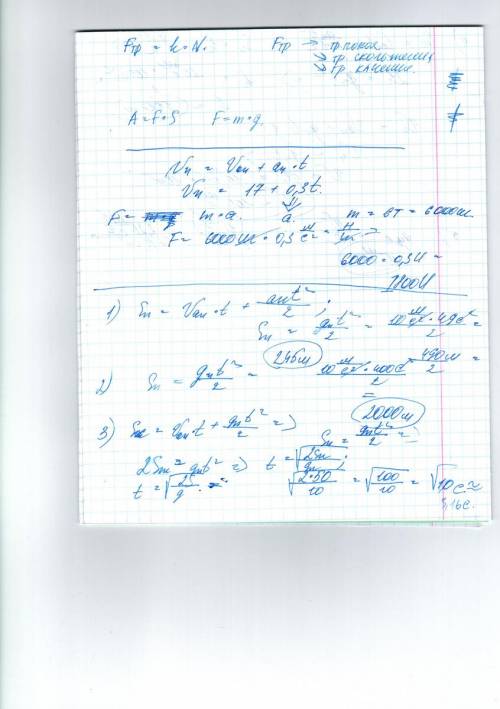 Fтр = k • N.
Fтр → тр покоя
↘ тр. скольжения
↘ Fр. качение.
A = F • S F = m • g.
Vx = Vox + ax • t
Vx = 17 + 0,3t.
F = m • a. a. m = 6т = 6000кг
F = 6000кг • 0,3 м/с² =
6000 • 0,3Н =
1800Н
1) Sx = Vox • t + axt²/2 ;
Sx = gxt²/2 = 10 м/с² • 49с²/2 =
245м 490м/2 =
2) Sx = gxt²/2 = 10 м/с² • 400с²/2 =
2000м
3) Sx = Vox t + gxt²/2 =>
Sx = gxt²/2 =
2Sx = gxt² => t = √2Sx/gx ;
t = √2S/g . √2•50/10 = √100/10 = √10 с ≈
3,16с.